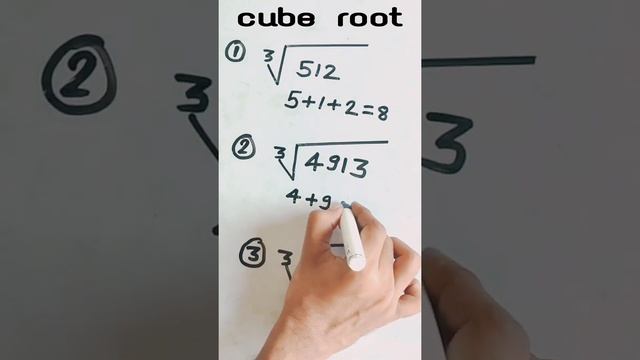 cube root
① ∛512
5+1+2=8
② ∛4913
4+9
③ 3
② 3
3